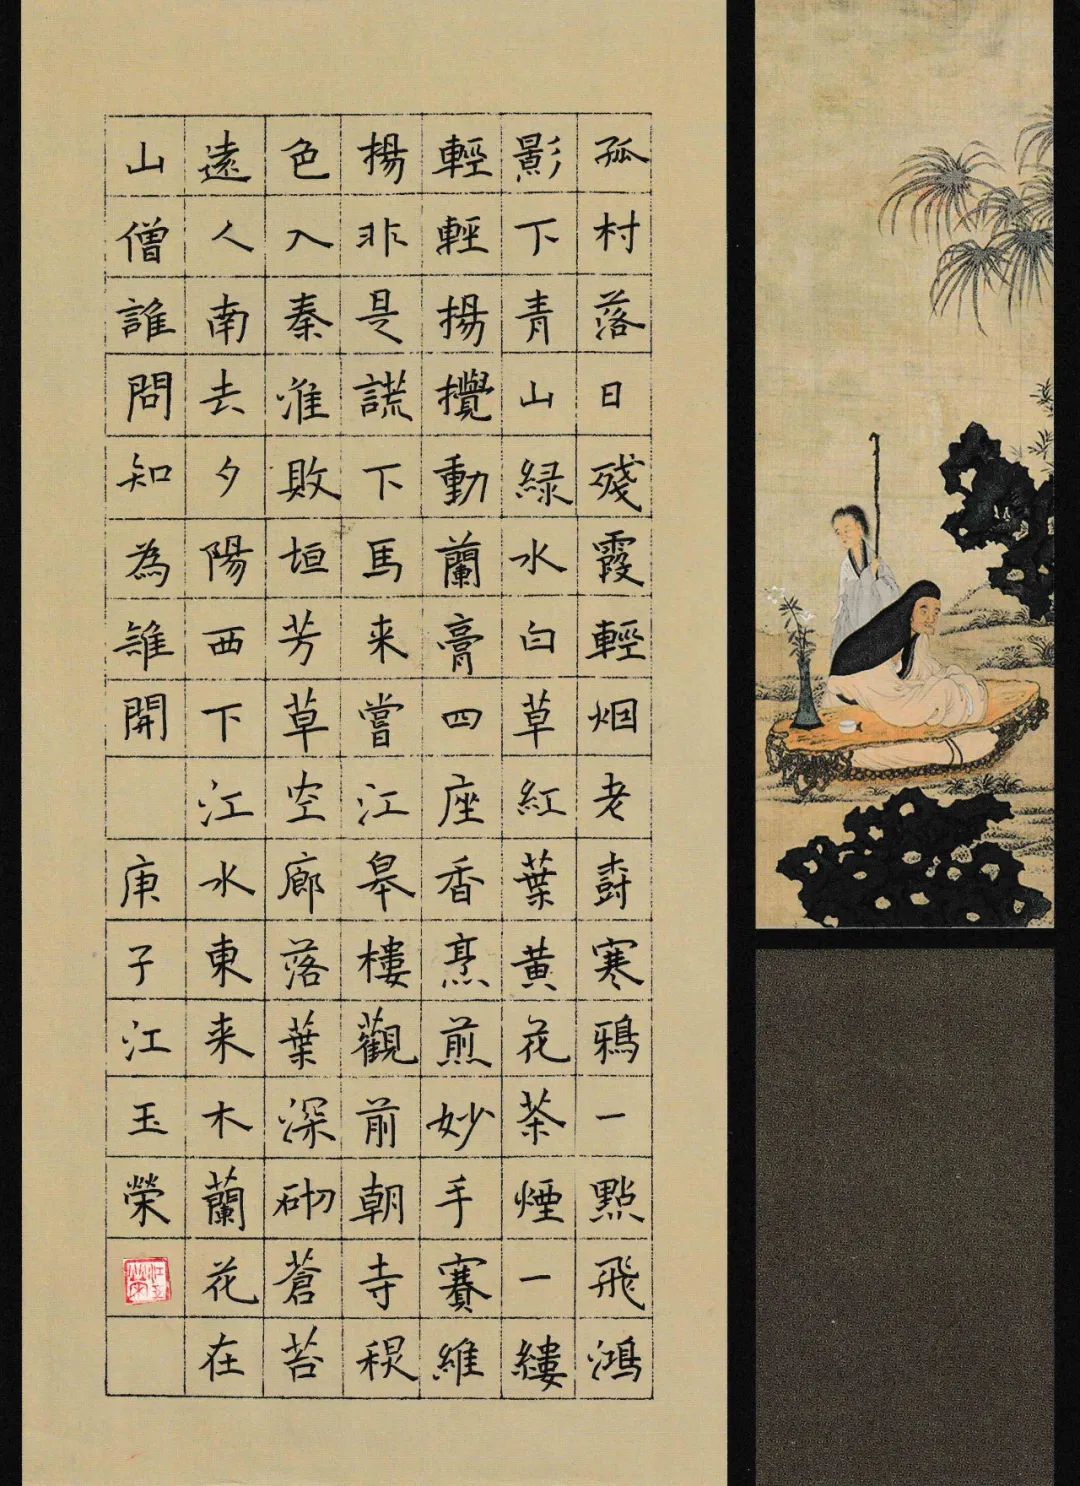 孤村落日殘霞輕烟老樹寒鴉一點飛鴻
影下青山綠水白草紅葉黃花茶煙一縷
輕輕揚攪動蘭膏四座香烹煎妙手賽維
揚非是謊下馬来嘗江皋樓觀前朝寺秋
色入秦淮敗垣芳草空廊落葉深砌蒼苔
遠人南去夕陽西下江水東来木蘭花在
山僧誰問知為誰開 庚子江玉榮
江玉榮